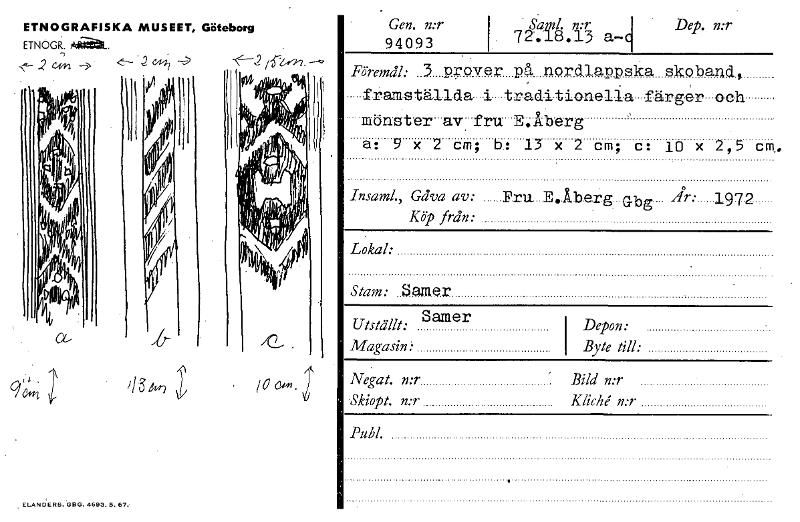 ETNOGRAFISKA MUSEET, Göteborg
ETNOGR.
2 cm
2 cm
2,5 cm
a
b
c.
9 cm
13 cm
10 cm.
ELANDERS. GBG. 4693. 5. 67.
Gen. n:r
94093
Saml. n:r
72.18.13 a-c
Dep. n:r
Föremål: 3 prover på nordlappska skoband,
framställda i traditionella färger och
mönster av fru E.Åberg
a: 9 x 2 cm; b: 13 x 2 cm; c: 10 x 2,5 cm.
Insaml., Gåva av: Fru E.Åberg Gbg År: 1972
Köp från:
Lokal:
Stam: Samer
Utställt: Samer
Depon:
Magasin:
Byte till:
Negat. n:r
Bild n:r
Skiopt. n:r
Kliché n:r
Publ.